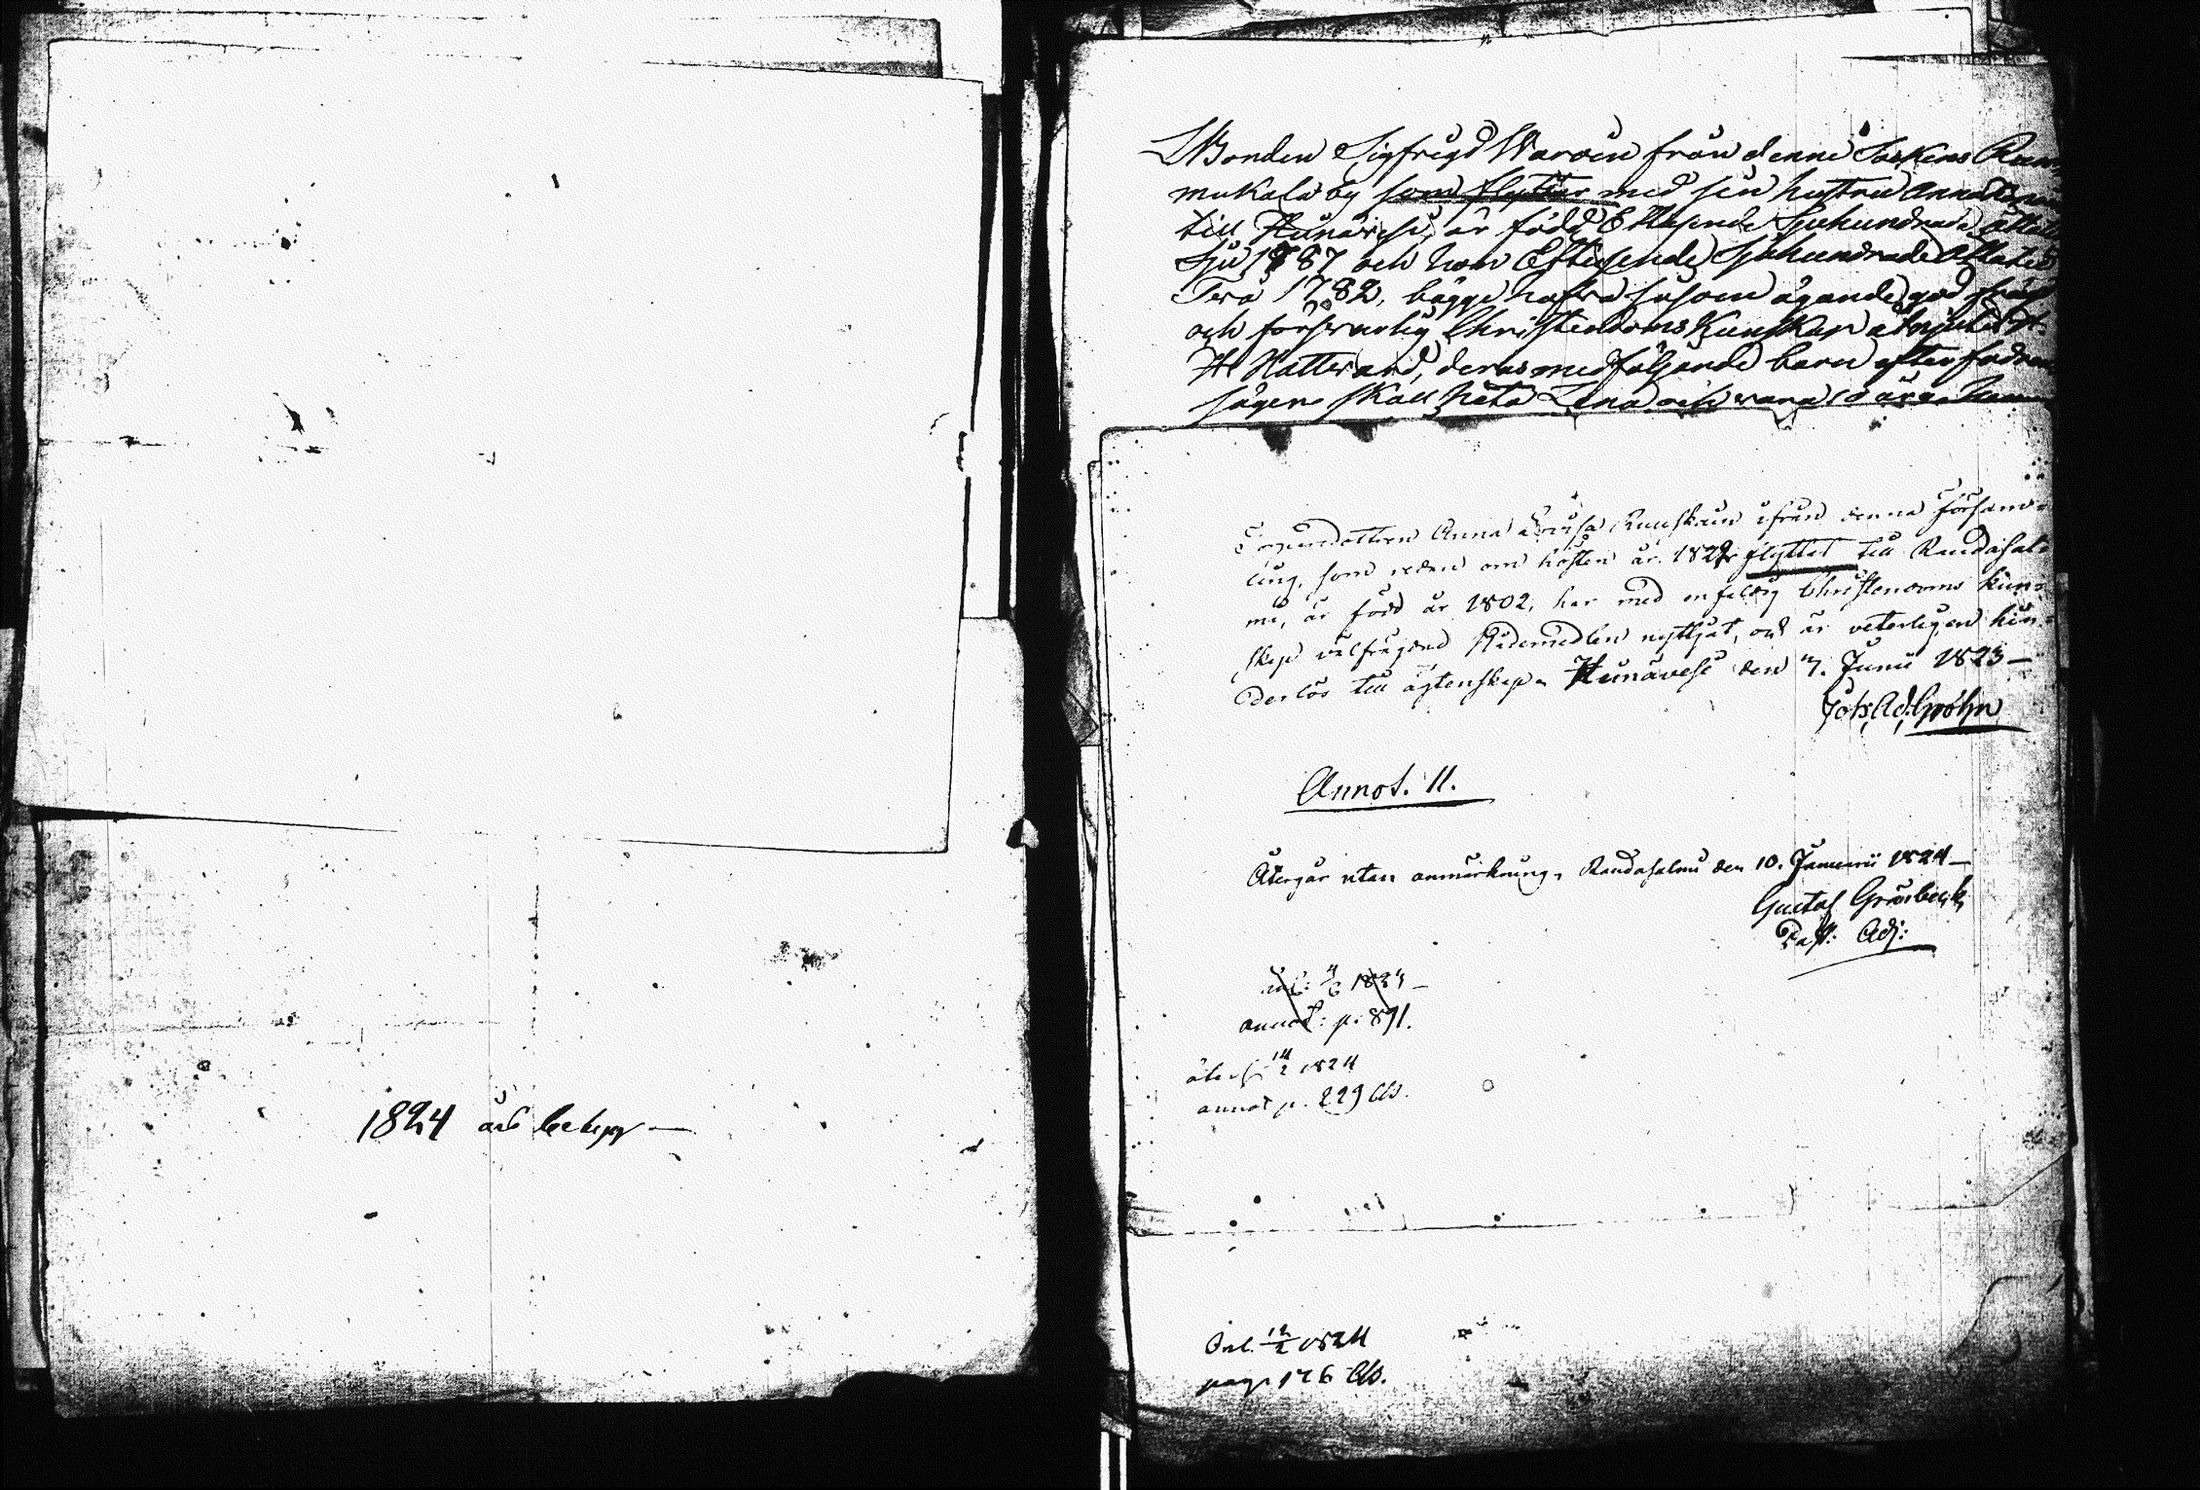 1824 års betygg —
Bonden Sigfrijd Waroin från denne Sockens Ram
mukala by som flyttar med sin hustru Anna
till Hünävesi, är född Ettusende Sjuhundrade åttati
Sju 1787 och hon Ettusende Sjuhundrade Åttatie
Två 1782, bägge hafva såsom ägande god frägd
och försvarlig Christendoms Kunskap åtnjutit
H Nattvard, deras medföljande barn efter fadrens
sägen skall heta Lena och vara 10 år.
Sorpandottren Anna Lovisa ifrån denna Försam=
ling, som redan om hösten år 1822 flyttat till Randasal=
mi, är född år 1802, har med enfaldig Christendoms kun=
skap välfrägdad Nådemedlen nyttjat, och är veterligen hin=
derlös till ägtenskap. Hünävesi den 7. Junii 1823 —
Joh. Ad. Gröhn
Annot. 11.
Återgår utan anmärkning, Randasalmi den 10. Januarii 1824 —
Gustaf Gråsbeck
Past: Adj:
inl: 4/6 1823 —
annot: p. 891.
återl 14/2 1824
annot p. 229 Cls.
Inl. 12/2 1824
pag. 176 Cls.